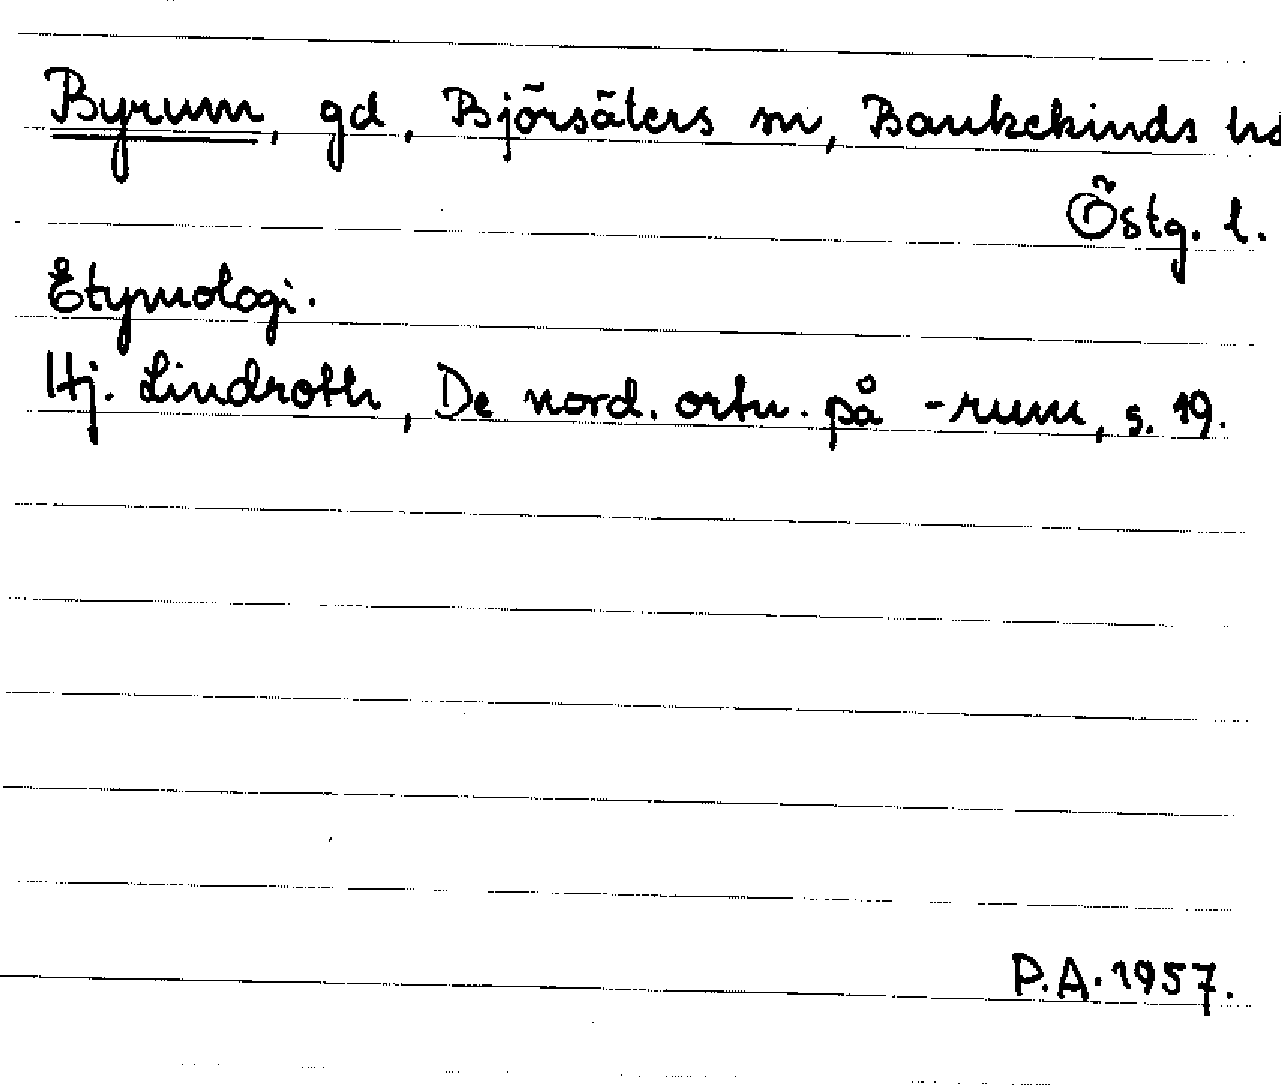 Byrum, gd, Björsäters sn, Bankekinds hd
Östg. l.
Etymologi.
Hj. Lindroth, De nord. ortn. på -rum, s. 19.
P.A. 1957.